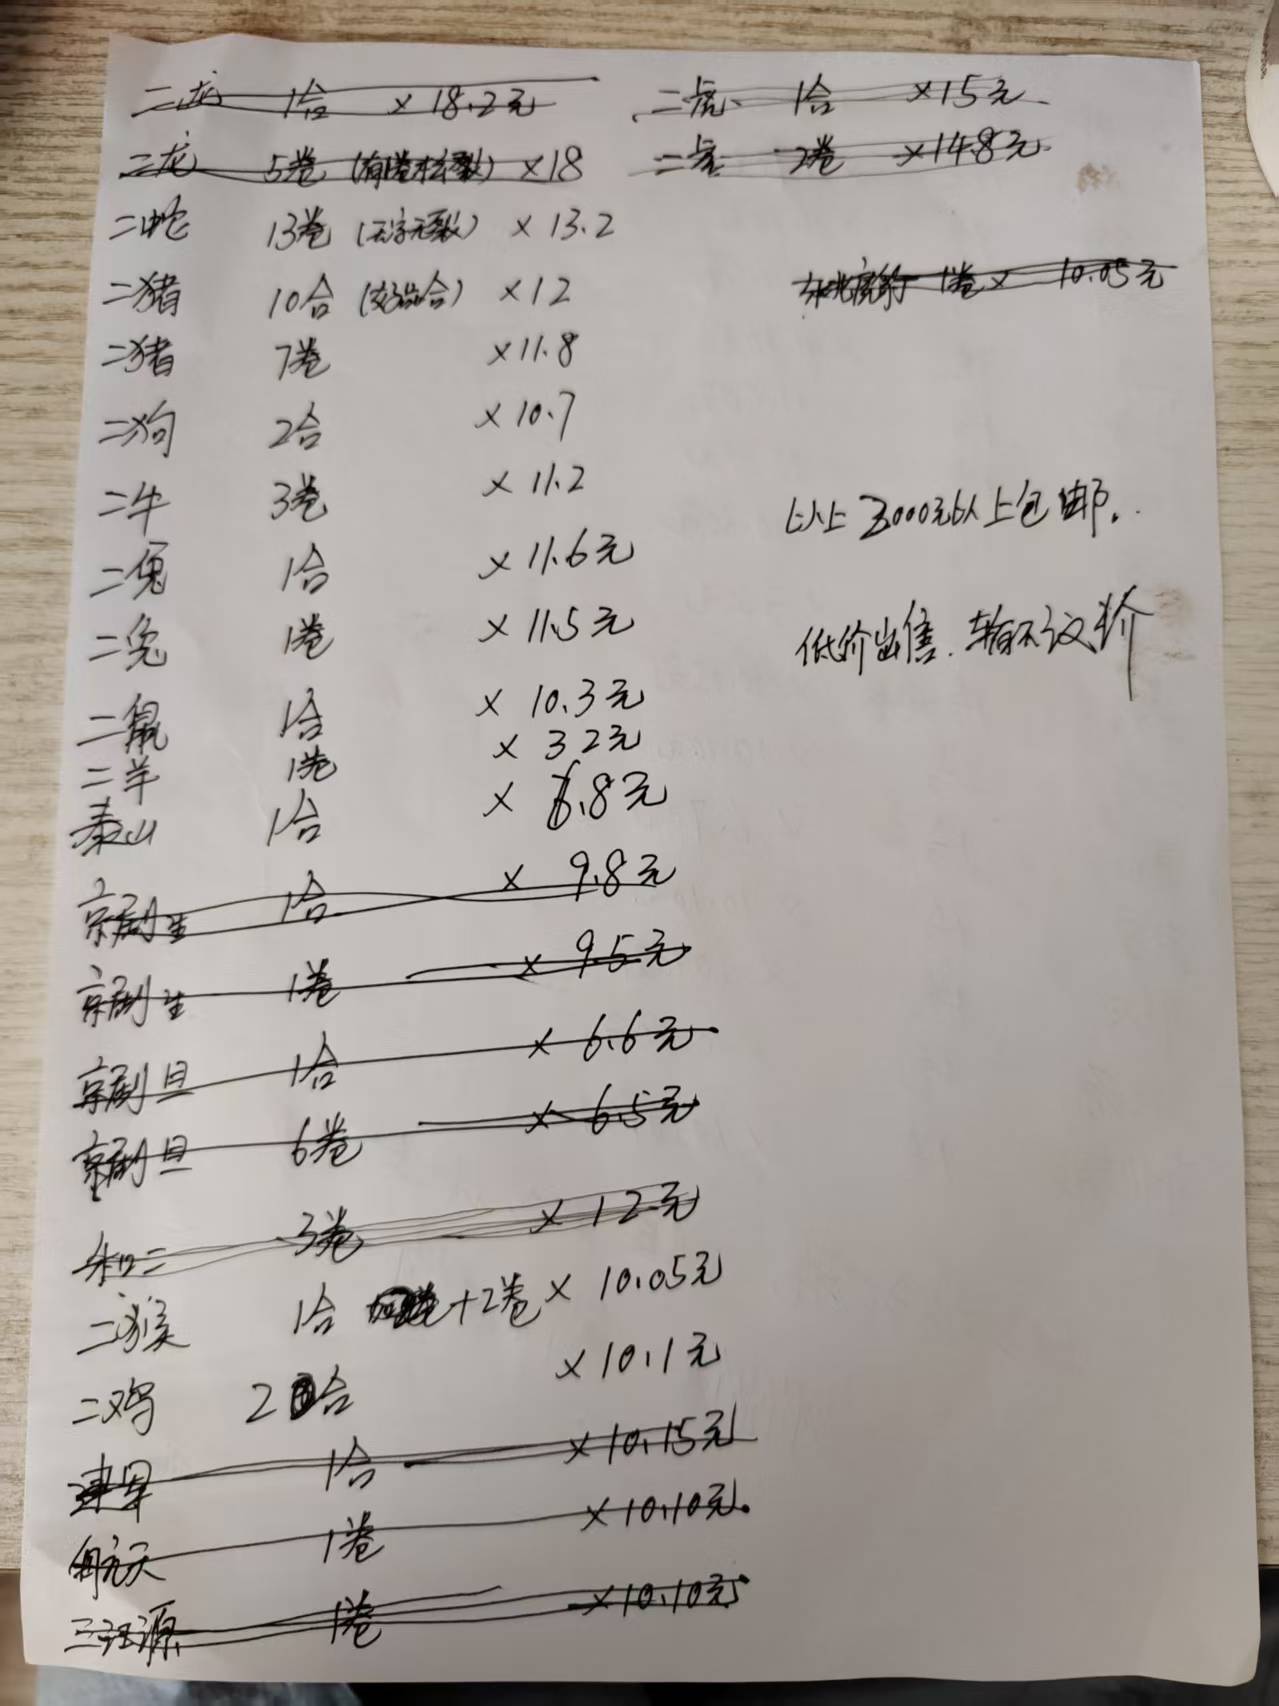 二龙 1合 × 18.2元
二龙 5卷 (有卷木裂) ×18
二蛇 13卷 (无字无裂) × 13.2
二猪 10合 (交流合) ×12
二猪 7卷 ×11.8
二狗 2合 ×10.7
二牛 3卷 ×11.2
二兔 1合 ×11.6元
二兔 1卷 ×11.5元
二鼠 1合 × 10.3元
二羊 1卷 × 32元
泰山 1合 × 6.8元
京剧生 1合 × 9.8元
京剧生 1卷 × 9.5元
京剧旦 1合 × 6.6元
京剧旦 6卷 × 6.5元
和二 3卷 × 12元
二猴 1合 +2卷 × 10.05元
二鸡 2合 ×10.1元
建军 1合 ×10.15元
航天 1卷 ×10.10元
三江源 1卷 ×10.10元
二虎 1合 ×15元
二虎 2卷 ×14.8元
1卷 × 10.05元
以上3000元以上包邮.
低价出售. 概不议价